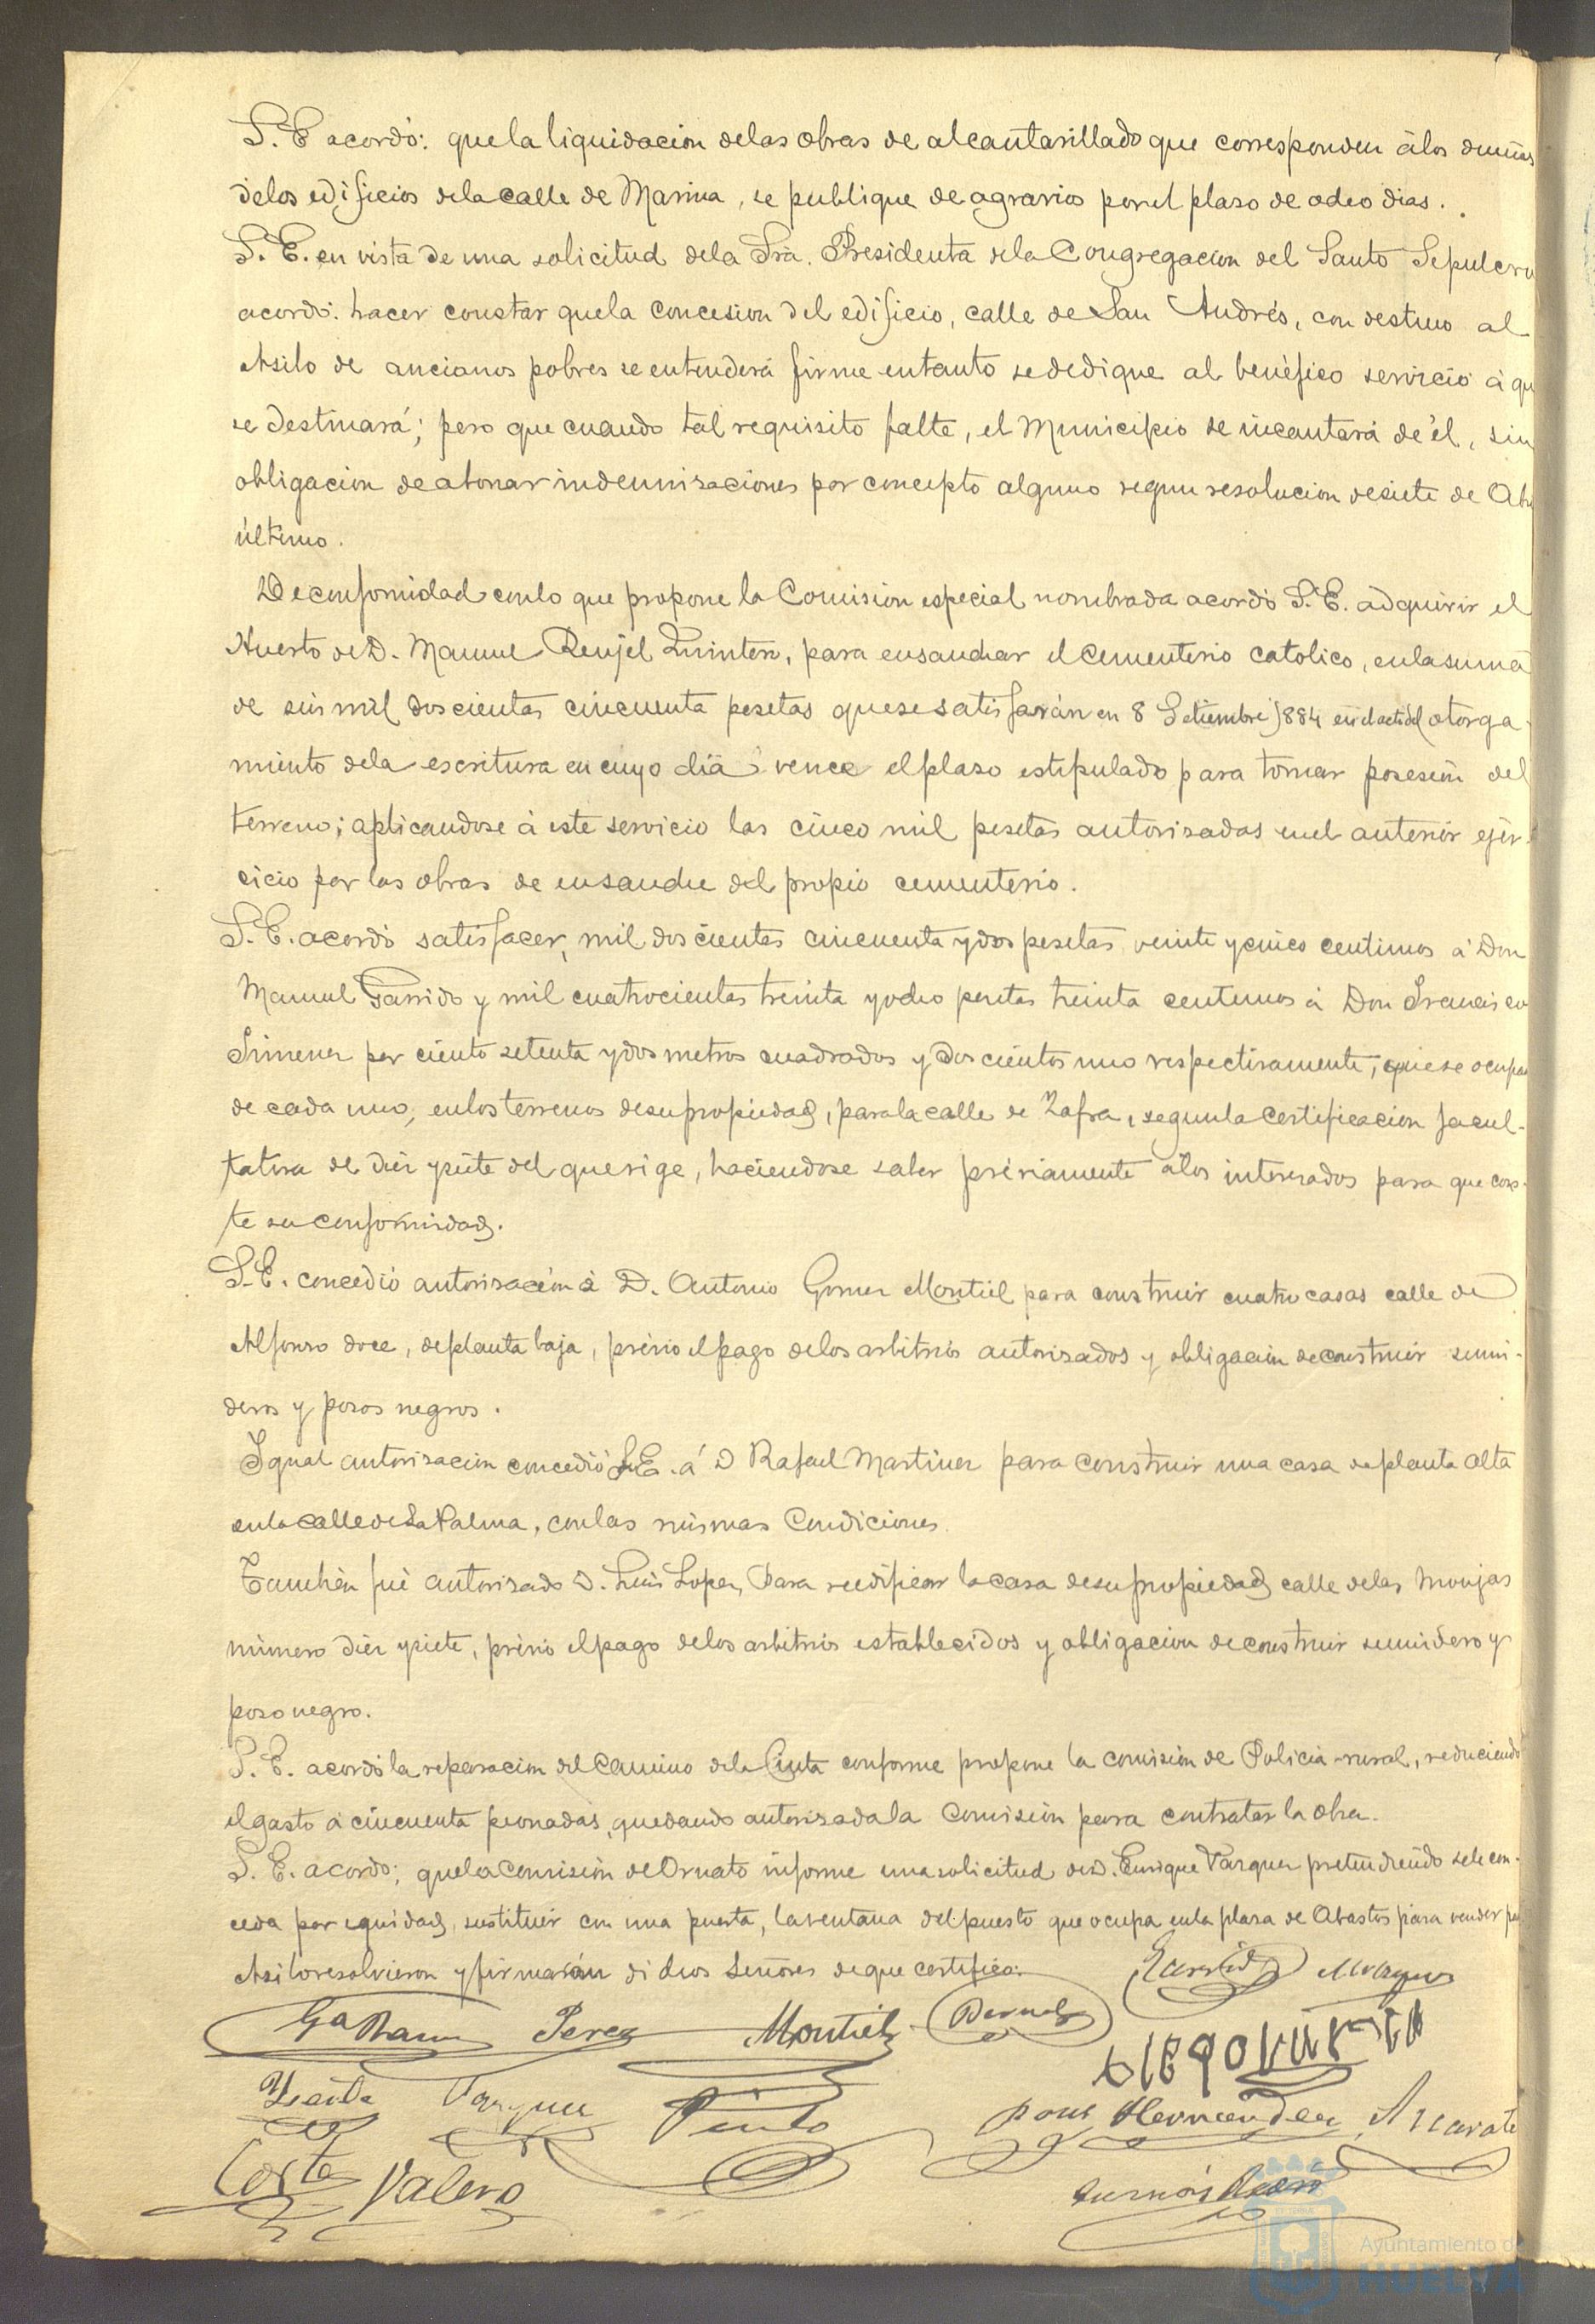 S. E. acordó: que la liquidacion de las obras de alcantarillado que corresponden á los dueños
de los edificios de la calle de Marina, se publique de agravios por el plaso de ocho dias.
S. E. en vista de una solicitud de la Sra. Presidenta de la Congregacion del Santo Sepulcro
acordó: hacer constar que la concesion del edificio, calle de San Andrés, con destino al
Asilo de ancianos pobres se entenderá firme en tanto se dedique al benéfico servicio á qu
se destinará; pero que cuando tal requisito falte, el Municipio se incautará de él, sin
obligacion de abonar indemnisaciones por concepto alguno segun resolucion de siete de Ab
último.
De conformidad con lo que propone la Comision especial nombrada acordó S. E. adquirir el
Huerto de D. Manuel Renjel Quintero, para ensanchar el cementerio catolico, en la suma
de seis mil doscientas cincuenta pesetas que se satisfarán en 8 Setiembre 1884 en el acto del otorga-
miento de la escritura en cuyo dia vence el plaso estipulado para tomar posesión del
terreno; aplicandose á este servicio las cinco mil pesetas autorisadas en el anterior ejer-
cicio por las obras de ensanche del propio cementerio.
S. E. acordó satisfacer, mil doscientas cincuenta y dos pesetas veinte y cinco centimos á Don
Manuel Garrido y mil cuatrocientas treinta y ocho pesetas treinta centimos á Don Francisco
Jimenez por ciento setenta y dos metros cuadrados y doscientos uno respectivamente, que se ocupan
de cada uno, en los terrenos de su propiedad, para la calle de Zafra, segun la certificacion facul-
tativa de diez y siete del que rige, haciendose saber préviamente á los interesados para que cons-
te su conformidad.
S. E. concedió autorisación á D. Antonio Gomez Montiel para construir cuatro casas calle de
Alfonso doce, de planta baja, prévio el pago de los arbitrios autorisados y obligacion de construir sumi-
deros y posos negros.
Igual autorisacion concedió S. E. á D Rafael Martinez para construir una casa de planta alta
en la calle de La Palma, con las mismas Condiciones.
Tambien fué autorisado D. Luis Lopez, Para reedificar la casa de su propiedad calle de las Monjas
número diez y siete, prévio el pago de los arbitrios establecidos y obligacion de construir sumidero y
poso negro.
S. E. acordó la reparacion del Camino de la Cinta conforme propone la comisión de Policia rural, reduciendo
el gasto á cincuenta peonadas, quedando autorisada la Comisión para contratar la obra.
S. E. acordó; que la Comisión de Ornato informe una solicitud de D. Enrique Vazquez pretendiendo se le con-
ceda por equidad, sustituir con una puerta, la ventana del puesto que ocupa en la plasa de Abastos para vender
Asi lo resolvieron y firmarán dichos Señores de que certifico.
Garrido Marquez
Perez Montiel Bernal
Vazquez Pinto
Hernandez Azcarate
Corte Valero
Ayuntamiento de
HUELVA